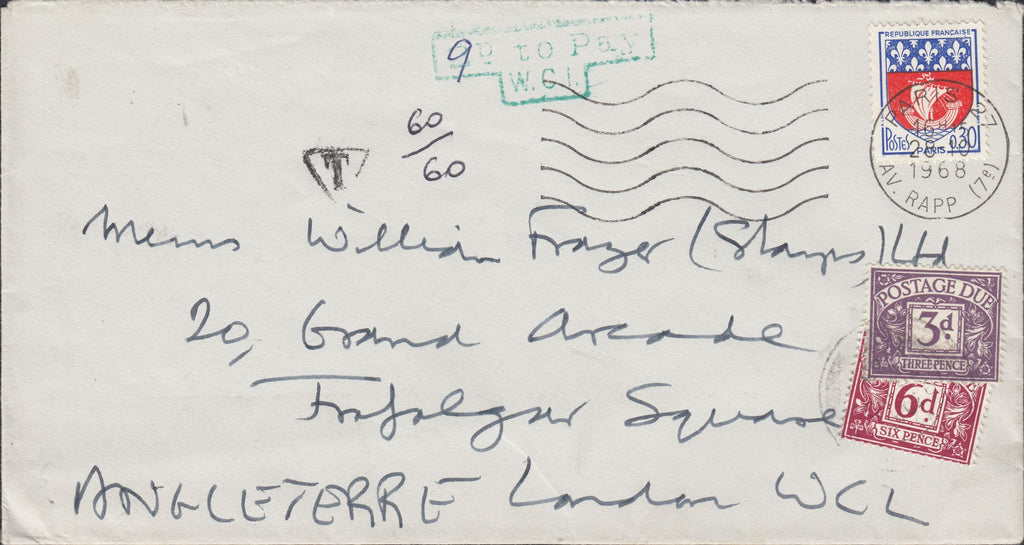 9D to Pay
W.C.1.
REPUBLIQUE FRANCAISE
POSTES PARIS 0,30
PARIS 27
28-10
1968
AV. RAPP (7e)
60/60
T
Messrs William Frazer (Stamps) Ltd
20, Grand Arcade
Trafalgar Square
ANGLETERRE London WC1
POSTAGE DUE
3d.
THREE PENCE
6d.
SIX PENCE